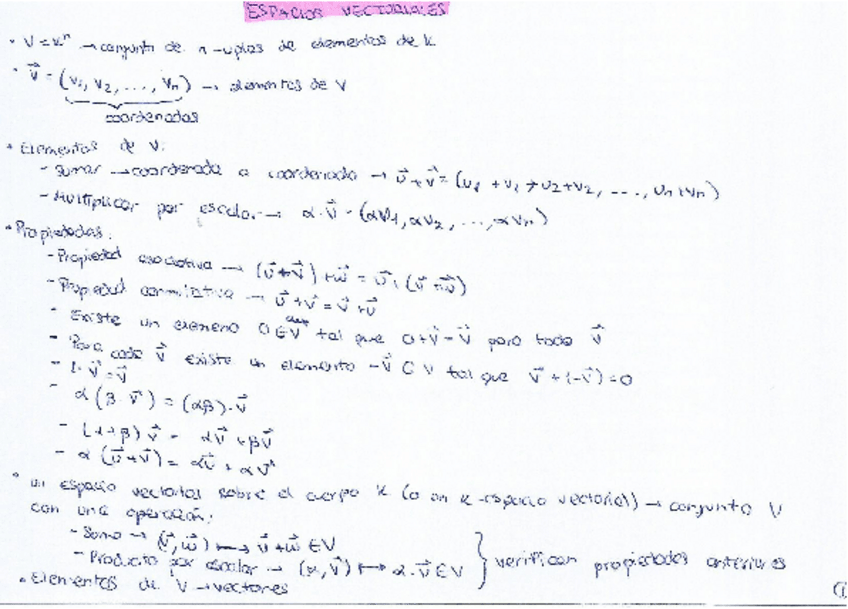 ESPACIOS VECTORIALES
• V = Kⁿ → conjunto de n-uplas de elementos de K
• v⃗ = (v₁, v₂, ..., vₙ) → elementos de V
coordenadas
• Elementos de V:
- Sumar → coordenada a coordenada → u⃗ + v⃗ = (u₁ + v₁, u₂ + v₂, ..., uₙ + vₙ)
- Multiplicar por escalar → α · v⃗ = (αv₁, αv₂, ..., αvₙ)
• Propiedades:
- Propiedad asociativa → (u⃗ + v⃗) + w⃗ = u⃗ + (v⃗ + w⃗)
- Propiedad conmutativa → u⃗ + v⃗ = v⃗ + u⃗
- Existe un elemento 0 ∈ V tal que 0 + v⃗ = v⃗ para todo v⃗
- Para cada v⃗ existe un elemento -v⃗ ∈ V tal que v⃗ + (-v⃗) = 0
- 1 · v⃗ = v⃗
- α (β · v⃗) = (αβ) · v⃗
- (α + β) v⃗ = αv⃗ + βv⃗
- α (u⃗ + v⃗) = αu⃗ + αv⃗
• Un espacio vectorial sobre el cuerpo K (o un K-espacio vectorial) → conjunto V
con una operación:
- Suma → (v⃗, w⃗) ↦ v⃗ + w⃗ ∈ V
- Producto por escalar → (α, v⃗) ↦ α · v⃗ ∈ V } verifican propiedades anteriores
• Elementos de V → vectores
①